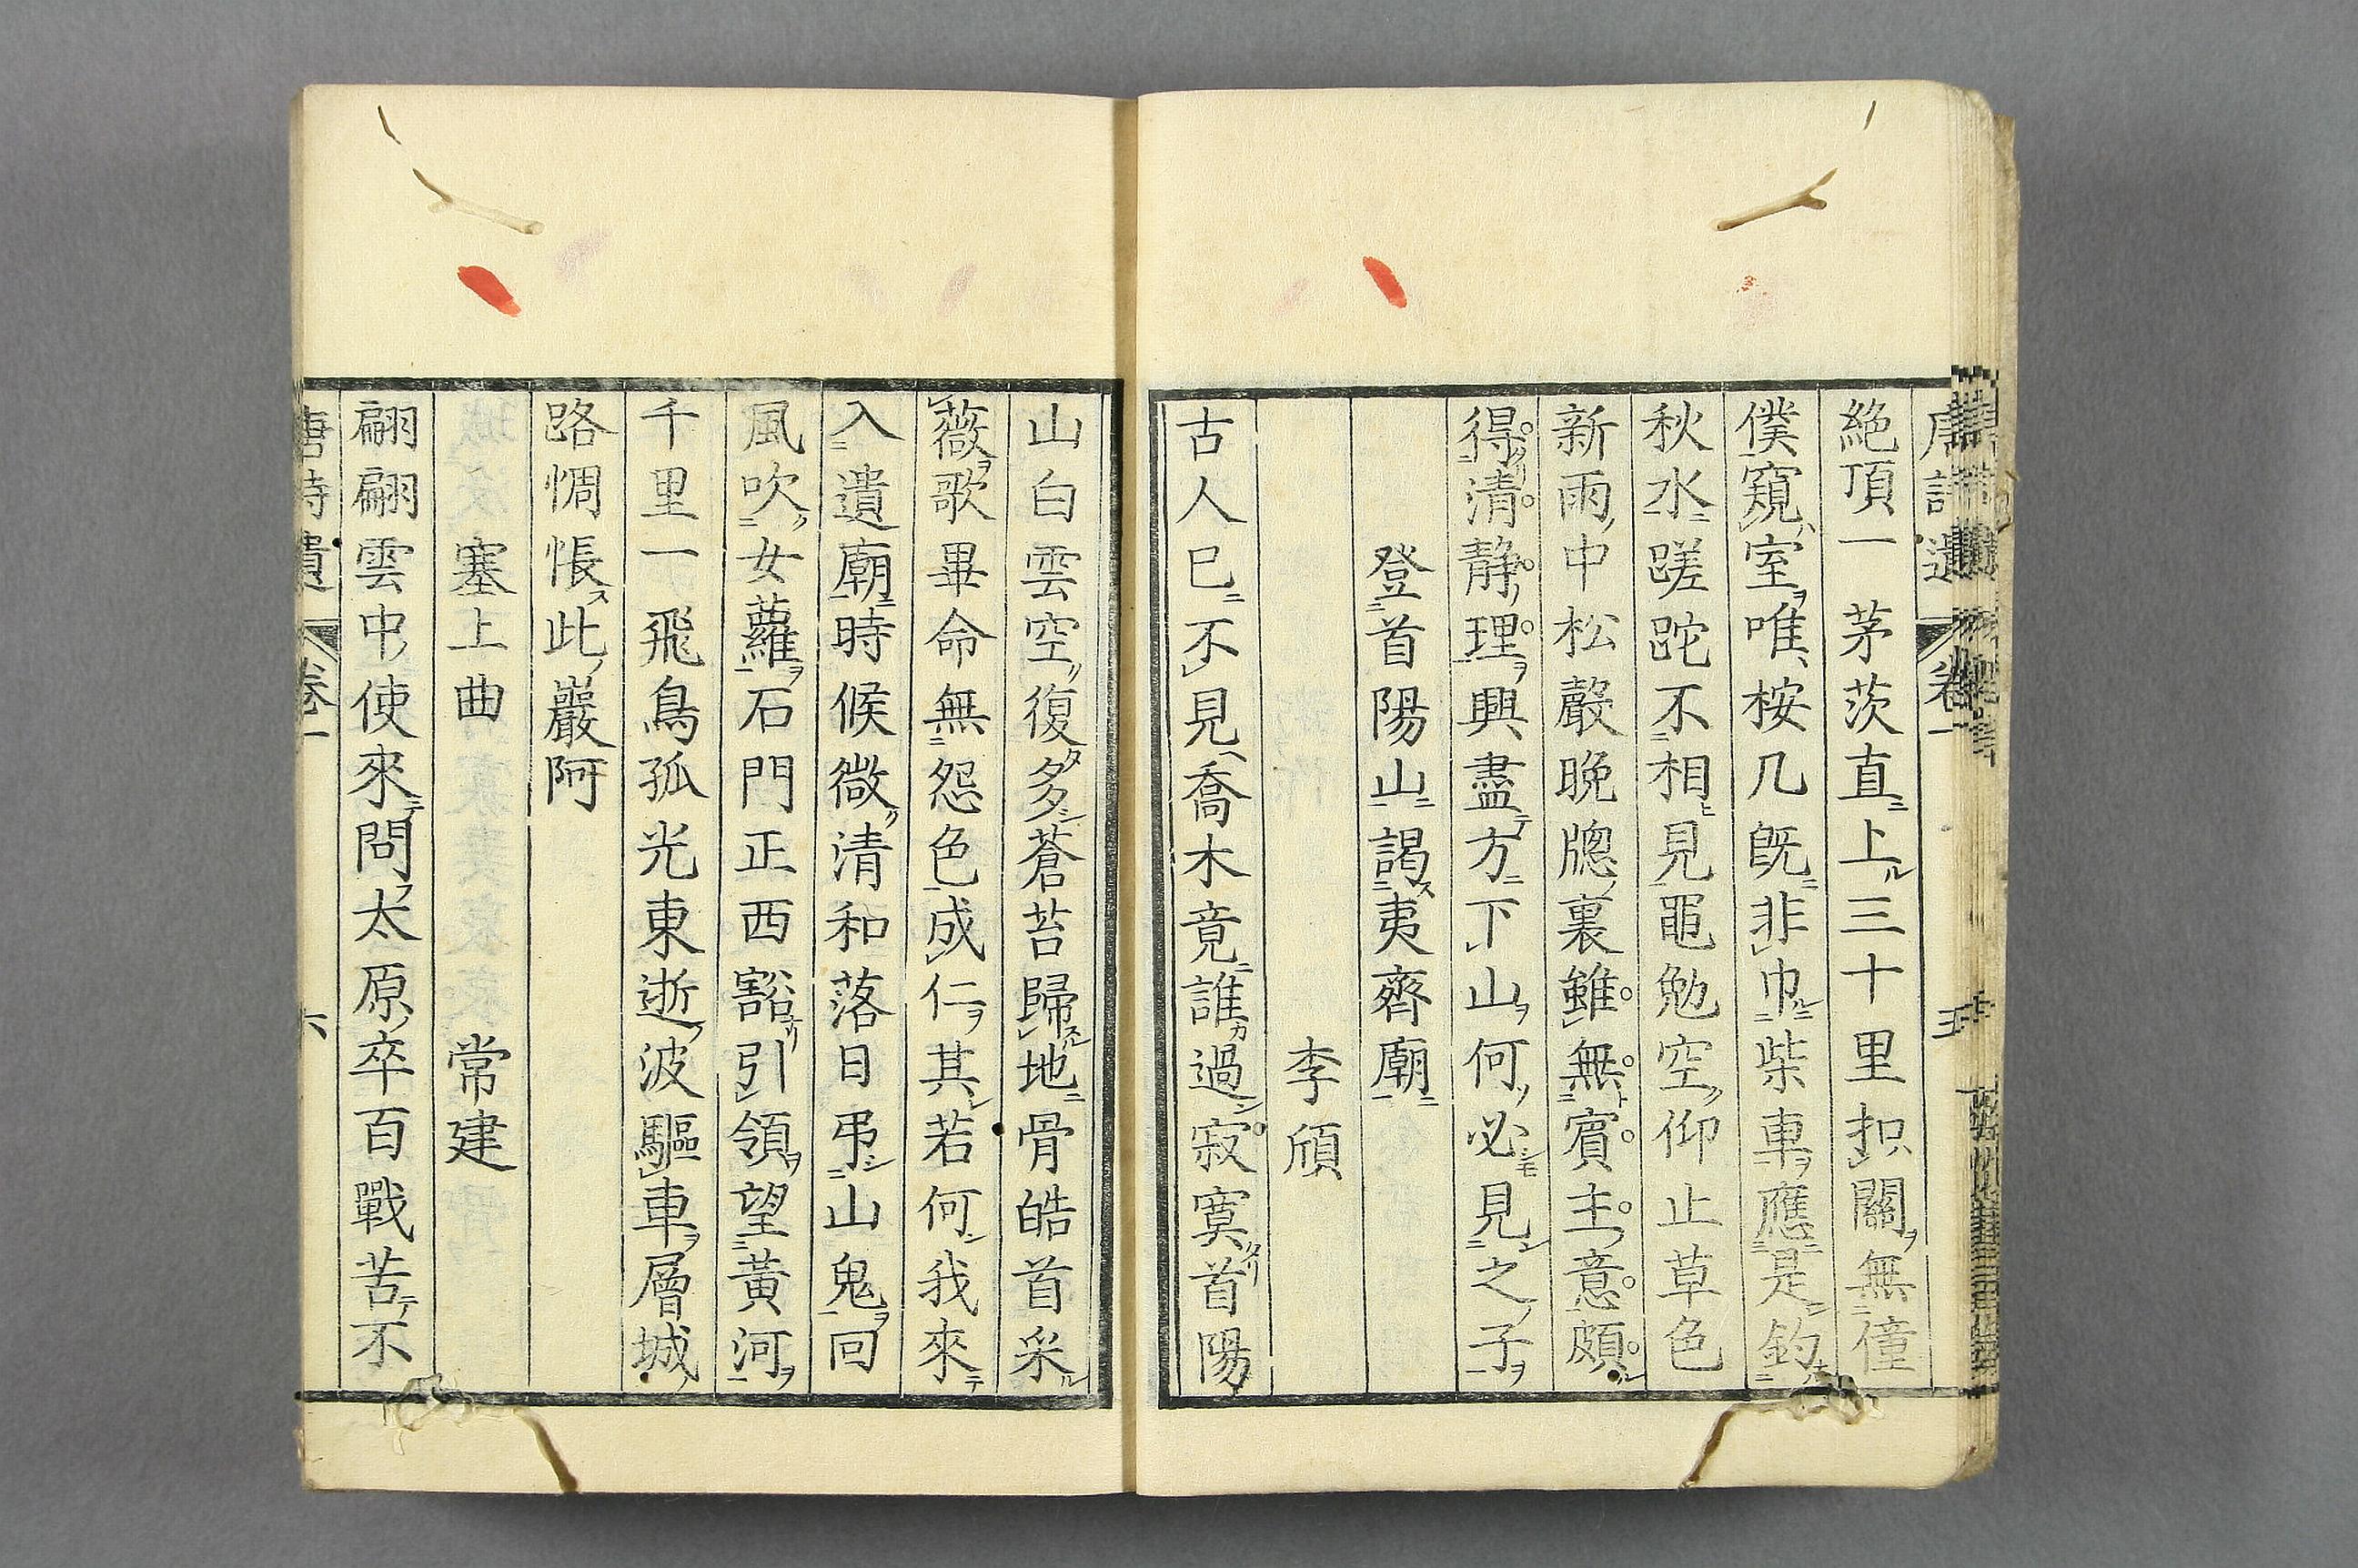 唐詩遺 卷一
絶頂一茅茨直上三十里扣關無僮
僕窺室唯桉几既非巾柴車應是釣
秋水蹉跎不相見黽勉空仰止草色
新雨中松聲晩牕裏雖無賓主意頗
得清静理興盡方下山何必見之子
登首陽山謁夷齊廟
李頎
古人已不見喬木竟誰過寂寞首陽
山白雲空復多蒼苔歸地骨皓首采
薇歌畢命無怨色成仁其若何我來
入遺廟時候微清和落日弔山鬼回
風吹女蘿石門正西豁引領望黃河
千里一飛鳥孤光東逝波驅車層城
路惆悵此巖阿
塞上曲 常建
翩翩雲中使來問太原卒百戰苦不
唐詩遺 卷一 六